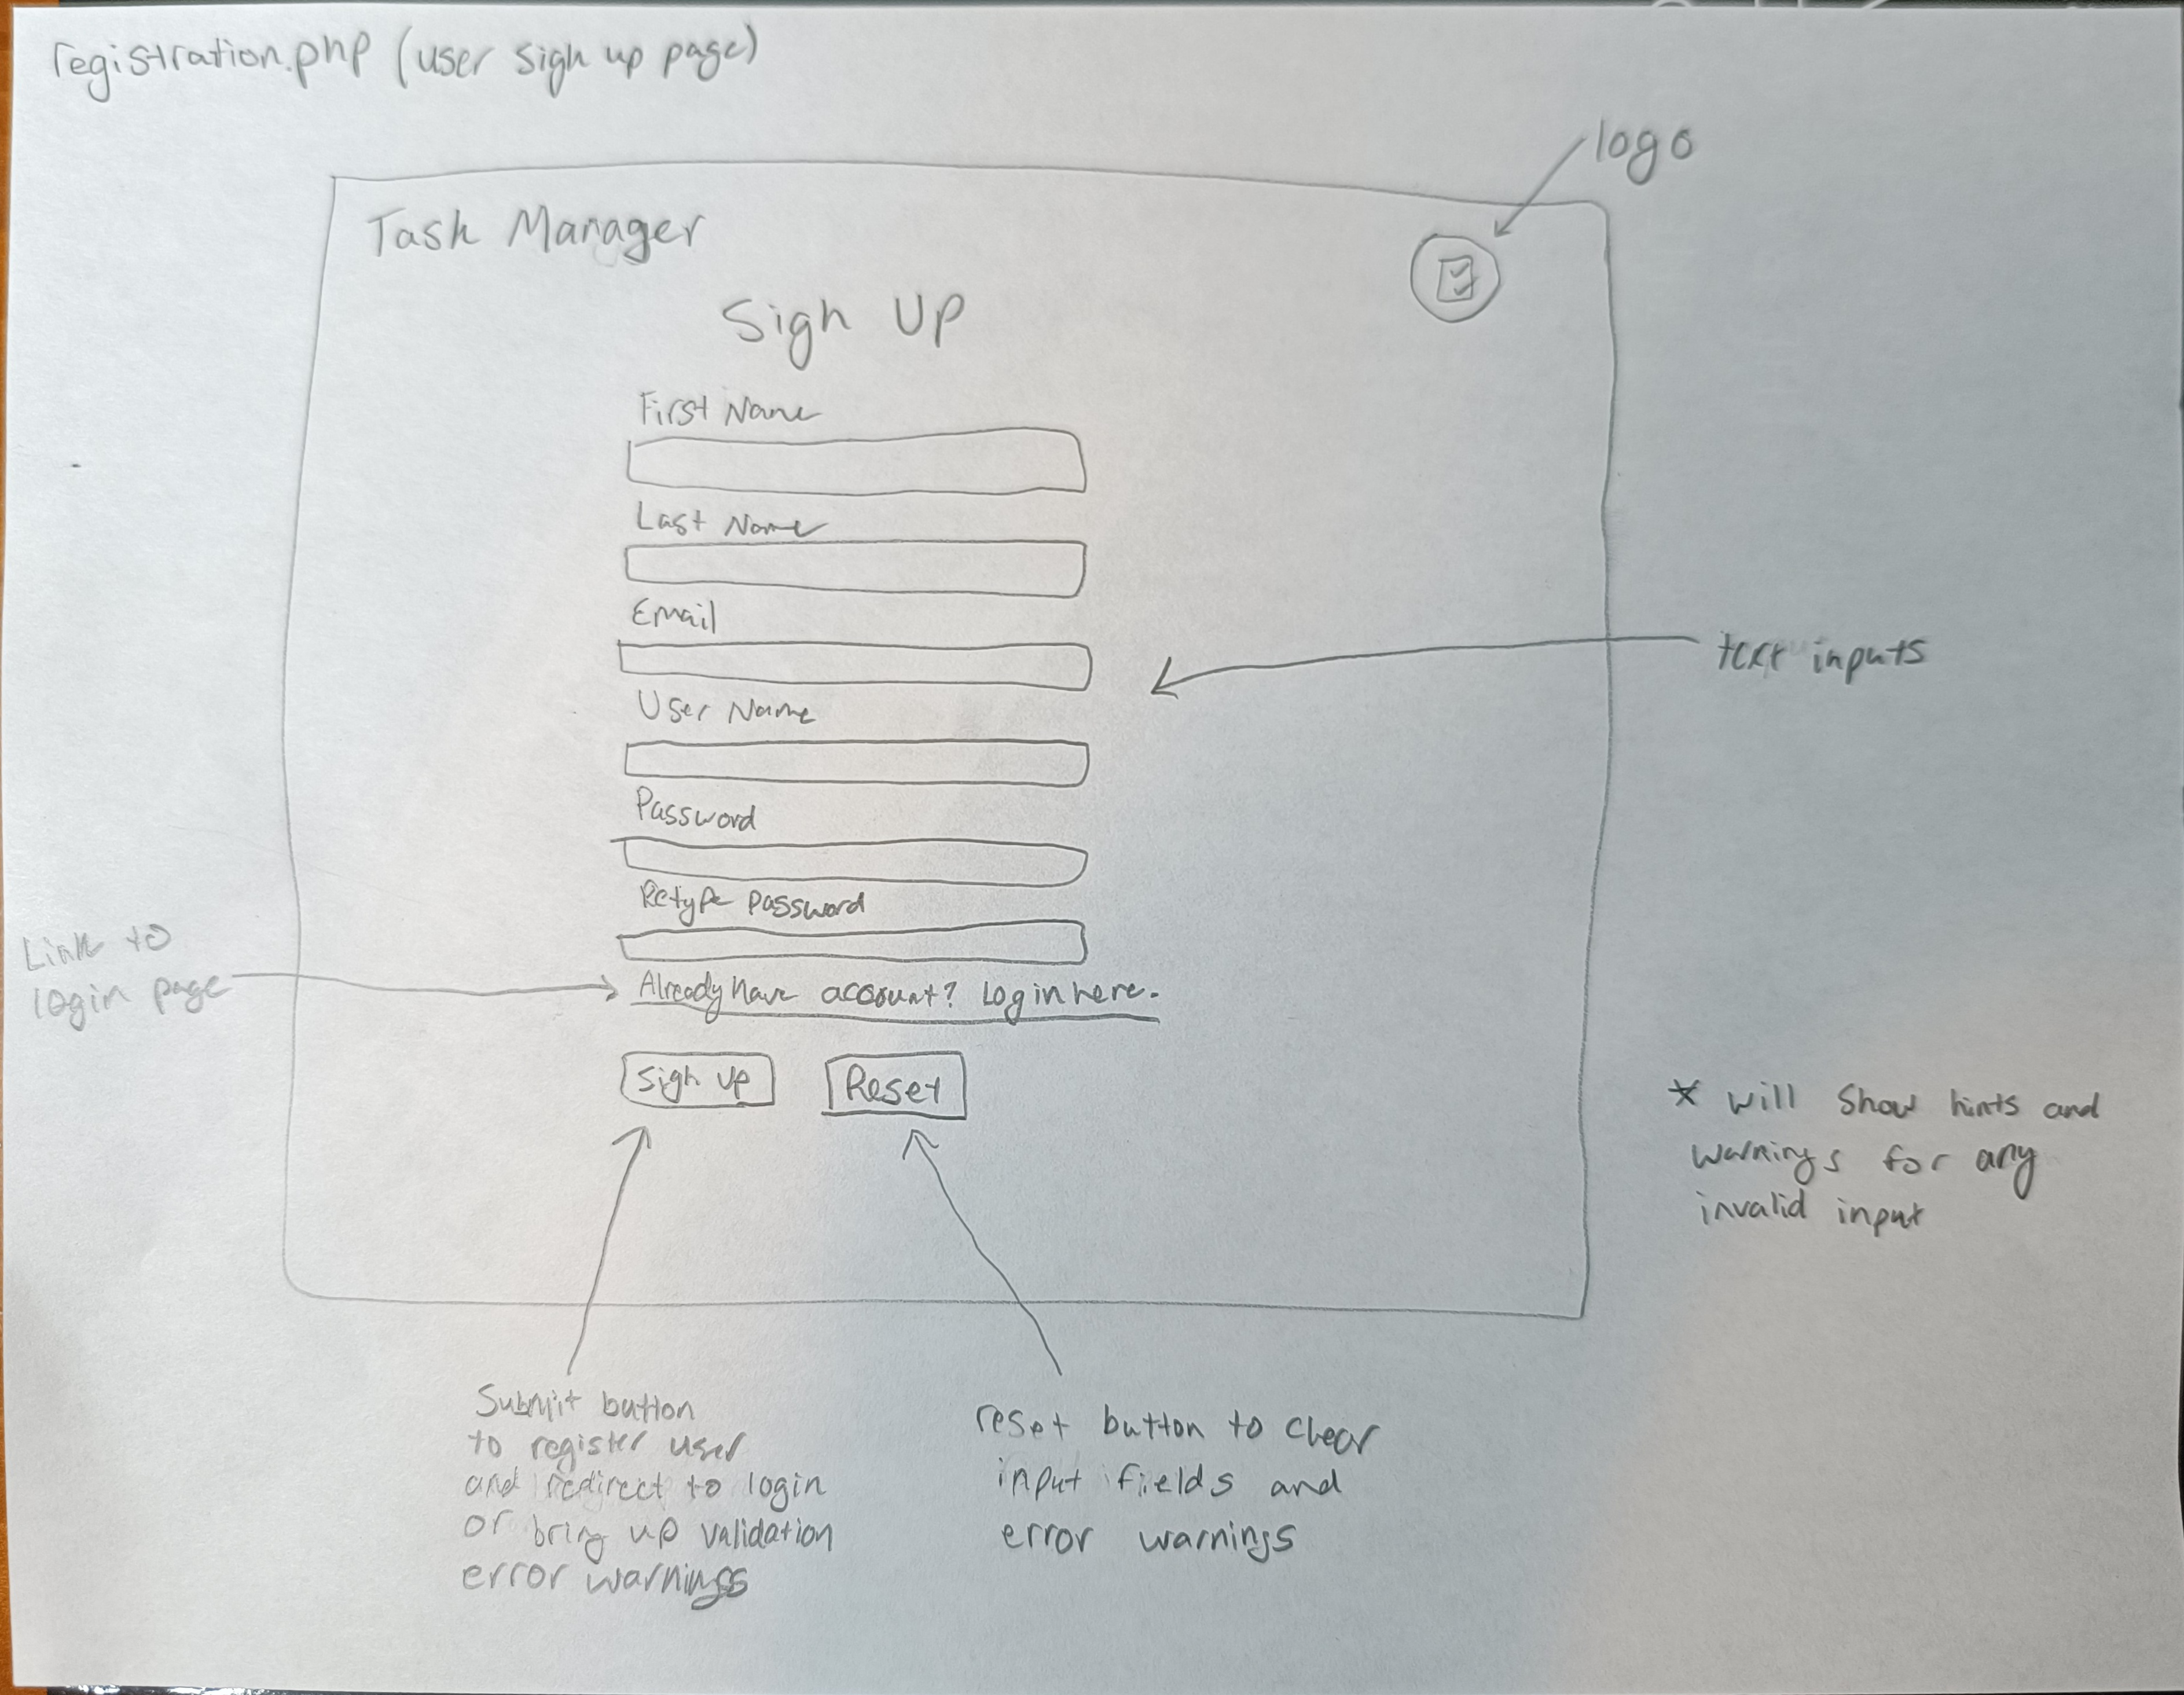 registration.php (user sign up page)
logo
Task Manager
Sign Up
First Name
Last Name
Email
text inputs
User Name
Password
Retype password
Link to
login page
Already have account? Login here.
Sign up
Reset
* will show hints and
warnings for any
invalid input
Submit button
to register user
and redirect to login
or bring up validation
error warnings
reset button to clear
input fields and
error warnings